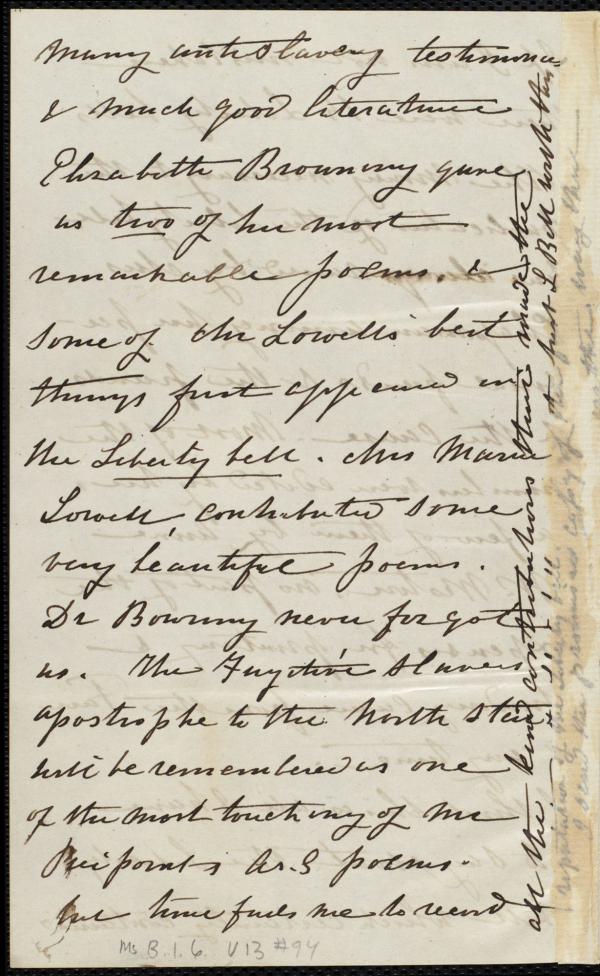 Many anti slavery testimonies
& much good literature
Elizabeth Browning gave
us two of her most
remarkable poems. &
some of Mr Lowell's best
things first appeared in
the Liberty bell. Mrs Maria
Lowell contributed some
very beautiful poems.
Dr Bowring never forgot
us. The Fugitive Slaves
apostrophe to the North Star
will be remembered as one
of the most touching of Mr
Pierponts A.S poems.
but time fails me to record
all the kind contributions that made the
Ms. B. 1. 6. V13 #94